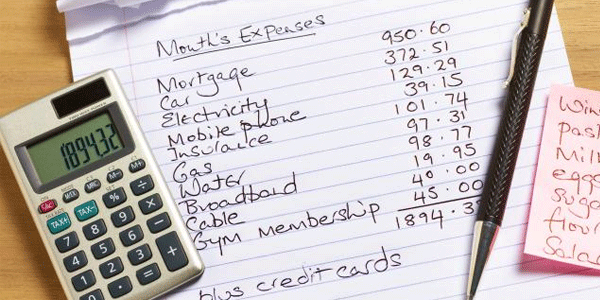 Month's Expenses
Mortgage 950.60
Car 372.51
Electricity 129.29
Mobile phone 39.15
Insurance 101.74
Gas 97.31
Water 98.77
Broadband 19.95
Cable 40.00
Gym Membership 45.00
1894.3
plus credit cards
1894.32
MR M- M+
TAX+ TAX- % ÷
7 8 9 ×
4 5 6 - +
Win
past
Mil
eggs
suga
flou
Sala